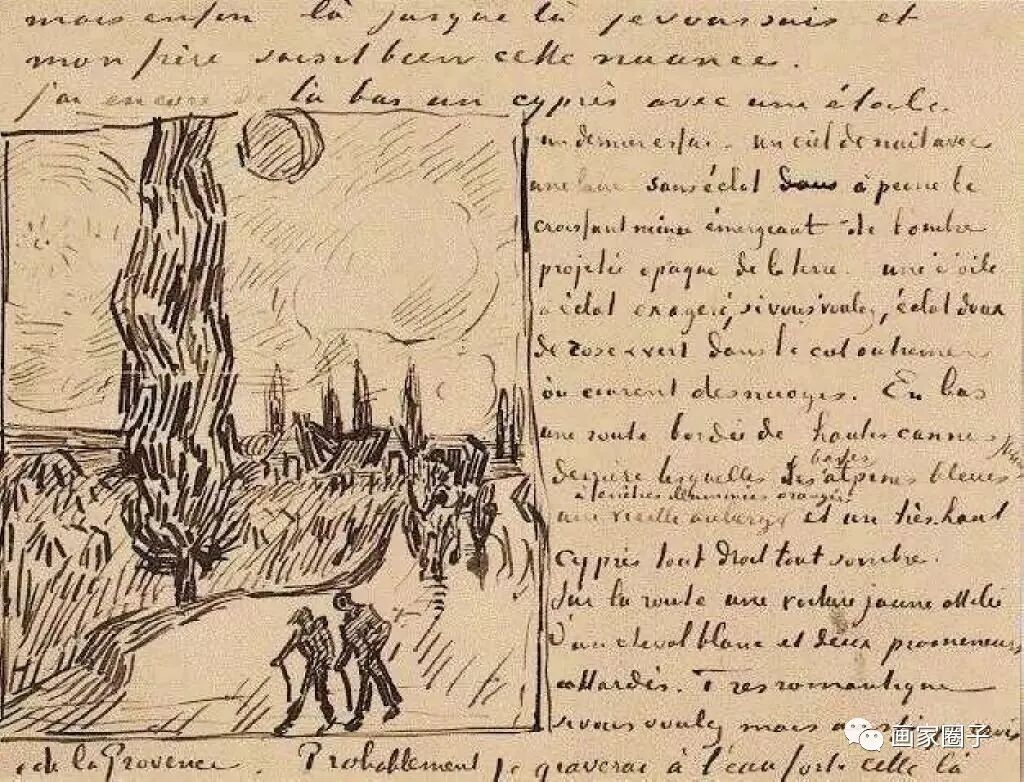 mais enfin là jusque là je vous suis et
mon frère saisit bien cette nuance.
j'ai encore de là bas un cyprès avec une étoile.
un dernier essai – un ciel de nuit avec
une lune sans éclat à peine le
croissant mince émergeant de l'ombre
projetée opaque de la terre – une étoile
à éclat exageré, si vous voulez, éclat doux
de rose & vert dans le ciel outremer
où courent des nuages. En bas
une route bordée de hautes cannes jaunes
derrière lesquelles les basses alpines bleues
à fenêtres illuminées orangées
une vieille auberge et un très haut
cyprès tout droit tout sombre.
Sur la route une voiture jaune attelée
d'un cheval blanc et deux promeneurs
attardés. Très romantique
si vous voulez mais aussi
de la Provence. Probablement je graverai à l'eau forte celle là
画家圈子